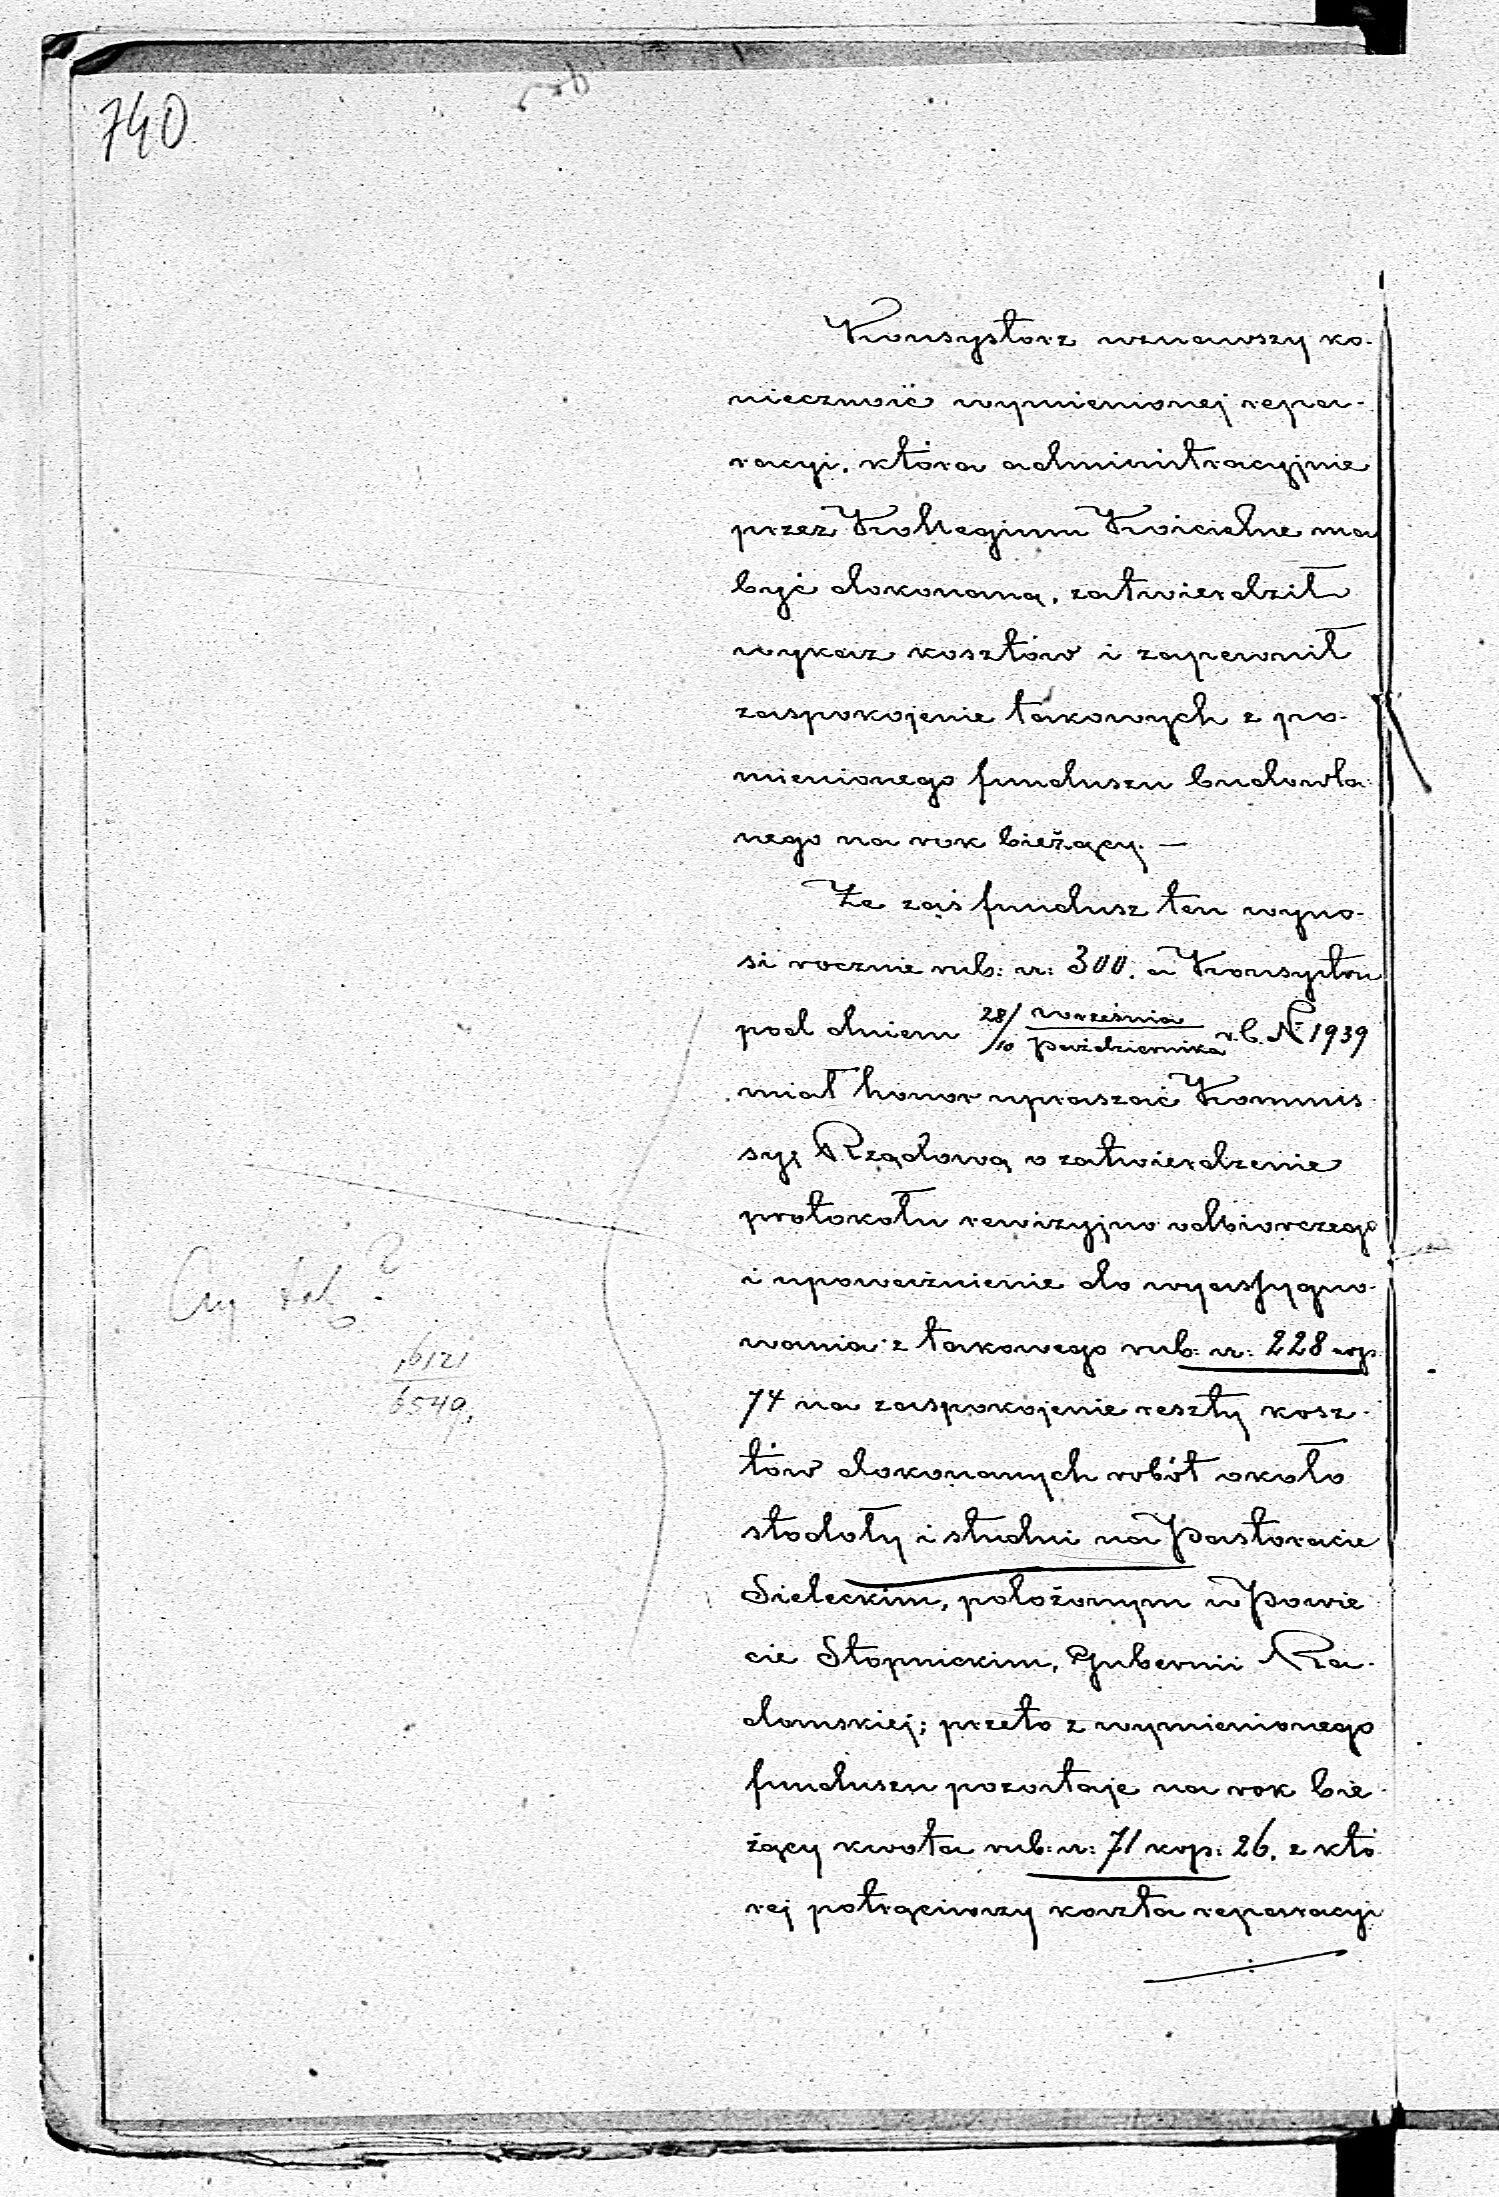 740
Konsystorz uznawszy ko-
nieczność wymienionej repa-
racyi, która administracyjnie
przez Kollegium Kościelne ma
być dokonaną, zatwierdził
wykaz kosztów i zapewnił
zaspokojenie takowych z po-
mienionego funduszu budowla-
nego na rok bieżący. —
Że zaś fundusz ten wyno-
si rocznie rub: sr: 300. a Konsystorz
pod dniem 28/10 września/października r. b. № 1939
miał honor upraszać Kommis-
syę Rządową o zatwierdzenie
protokołu rewizyjno odbiorczego
i upoważnienie do wyassygno-
wania z takowego rub: sr: 228 kop
74 na zaspokojenie reszty kosz-
tów dokonanych robót około
stodoły i studni na Pastoracie
Sieleckim, położonym w Powie-
cie Stopnickim, Gubernii Ra-
domskiej; przeto z wymienionego
funduszu pozostaje na rok bie-
żący kwota rub: sr: 71 kop: 26. z któ-
rej potrąciwszy koszta reparacyi
Czy tak?
6121
6549.